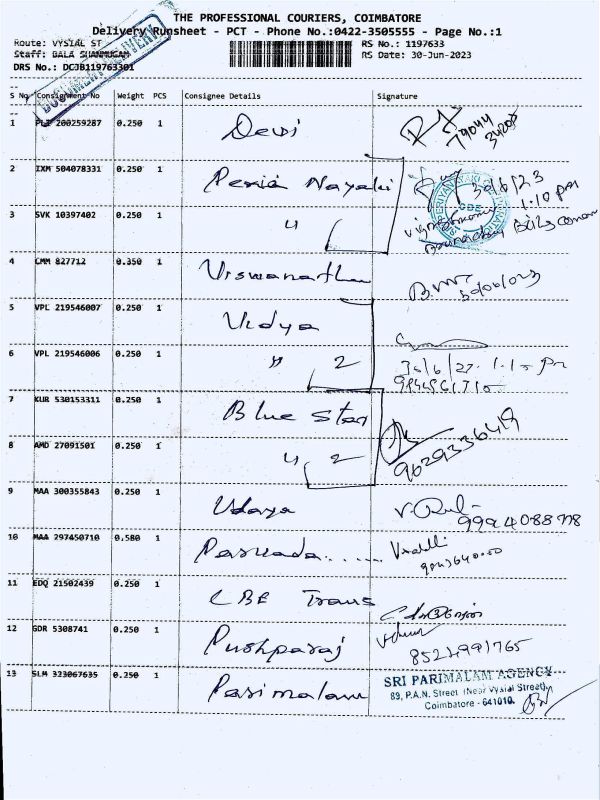 THE PROFESSIONAL COURIERS, COIMBATORE
Delivery Runsheet - PCT - Phone No.:0422-3505555 - Page No.:1
Route: VYSIAL ST
RS No.: 1197633
Staff: BALA SHANMUGAM
RS Date: 30-Jun-2023
DRS No.: DCJB119763301
DOCUMENT DELIVERY
S No Consignment No Weight PCS Consignee Details Signature
1 PLI 200259287 0.250 1 Devi
2 IXM 504078331 0.250 1 Peria Nayaki 30/6/23
1.10 pm
3 SVK 10397402 0.250 1 "
4 CMM 827712 0.350 1 Viswanathan
5 VPL 219546007 0.250 1 Vidya
6 VPL 219546006 0.250 1 " 2
7 KUR 530153311 0.250 1 Blue Star
8 AMD 27091501 0.250 1 " 2 9629336419
9 MAA 300355843 0.250 1 Udaya
10 MAA 297450710 0.580 1
11 EDQ 21502439 0.250 1 CBE Trans
12 GDR 5308741 0.250 1 Pushparaj 8524991765
13 SLM 323067635 0.250 1 Parimalam SRI PARIMALAM AGENCY
89, P.A.N. Street (Near Vysial Street),
Coimbatore - 641010.